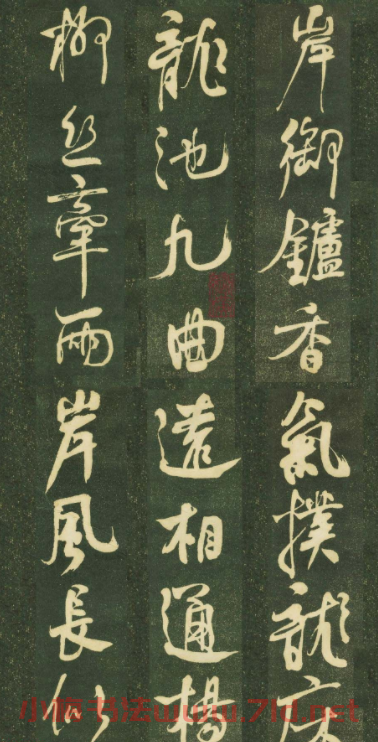 岸御鑪香氣撲龍床
龍池九曲遠相通楊
柳絲牽兩岸風長似
www.7ld.net